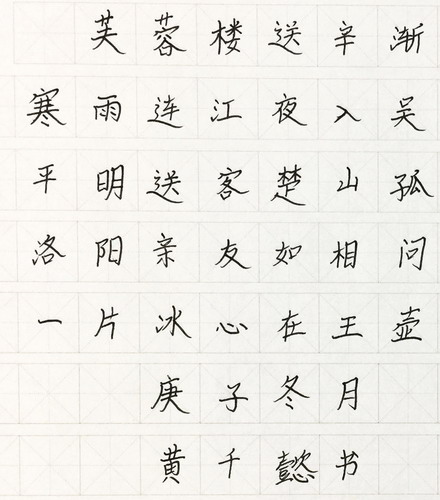 芙蓉楼送辛渐
寒雨连江夜入吴
平明送客楚山孤
洛阳亲友如相问
一片冰心在王壶
庚子冬月
黄千懿书